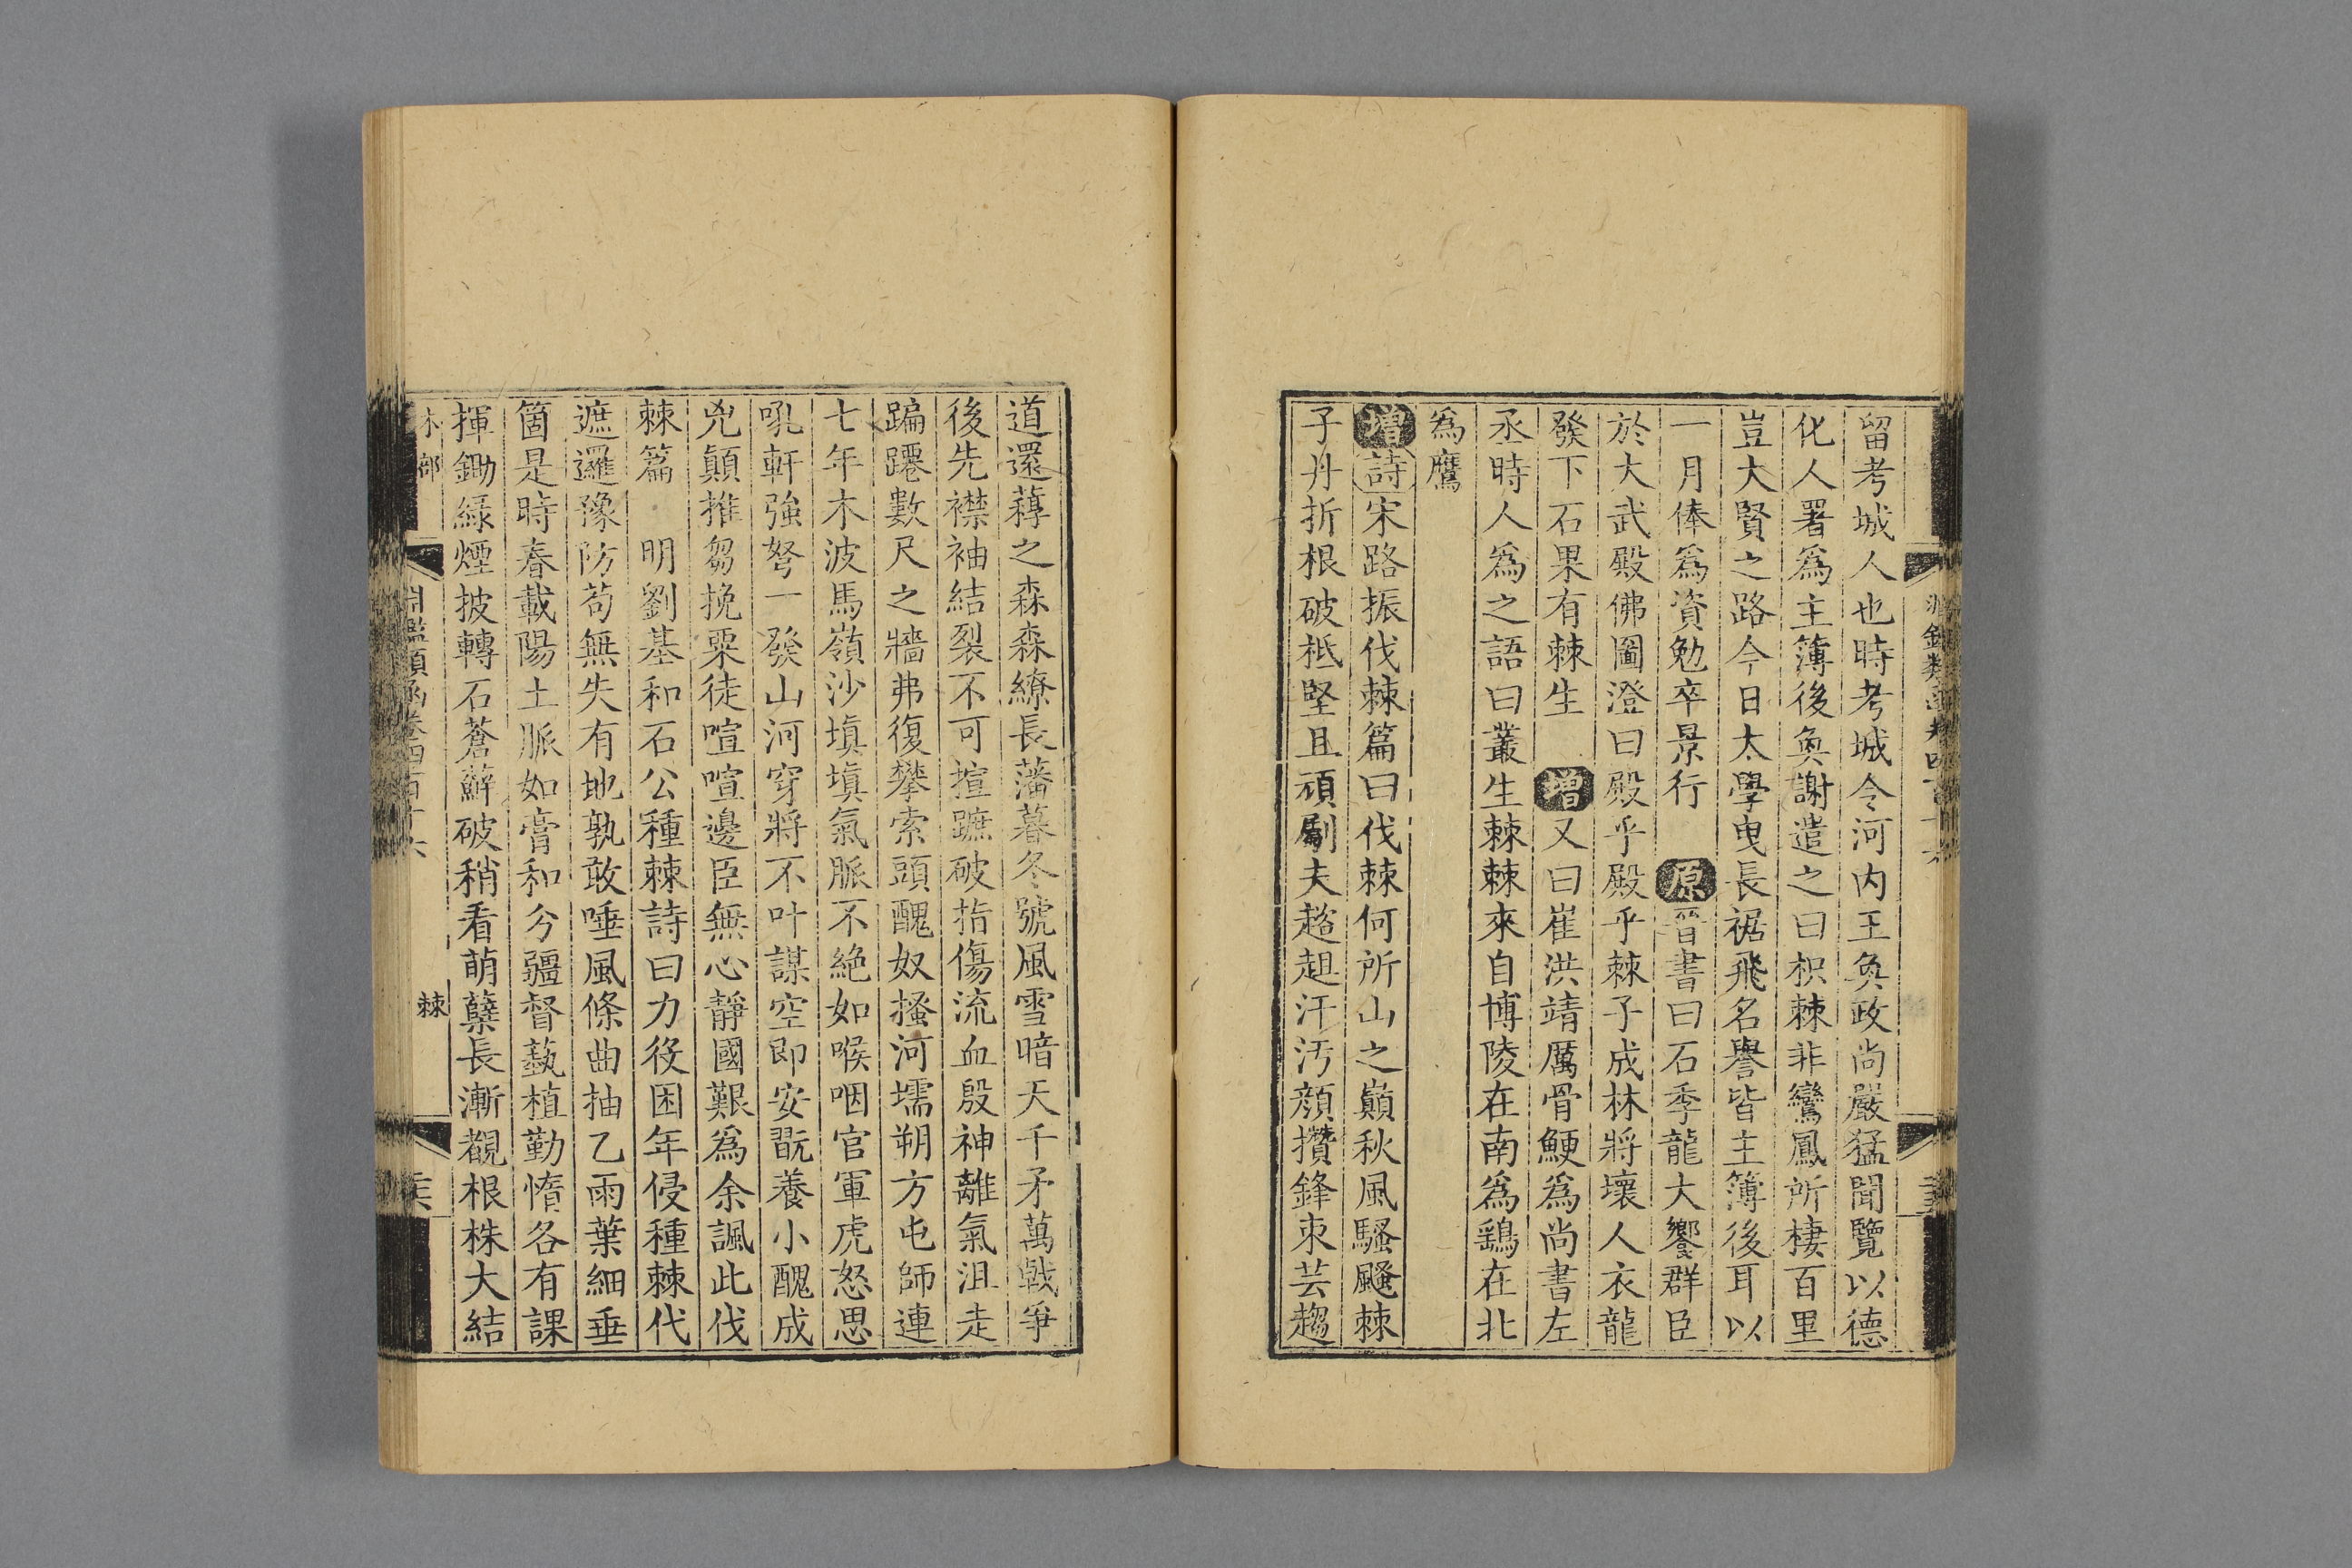 留考城人也時考城令河内王奐政尚嚴猛聞覽以德
化人署爲主簿後奐謝遣之曰枳棘非鸞鳳所棲百里
豈大賢之路今日太學曳長裾飛名譽皆主簿後耳以
一月俸爲資勉卒景行 原晉書曰石季龍大饗群臣
於大武殿佛圖澄曰殿乎殿乎棘子成林將壞人衣龍
發下石果有棘生 增又曰崔洪靖厲骨鯁爲尚書左
丞時人爲之語曰叢生棘棘來自博陵在南爲鷂在北
爲鷹
增詩宋路振伐棘篇曰伐棘何所山之巔秋風騷颼棘
子丹折根破柢堅且頑斸夫趦趄汗汚顏攢鋒朿芸趨
道還蓴之森森繚長藩暮冬號風雪暗天千矛萬戟爭
後先襟袖結裂不可揎蹠破指傷流血殷神離氣沮走
蹁躚數尺之牆弗復攀索頭醜奴搔河壖朔方屯師連
七年木波馬嶺沙塡塡氣脈不絶如喉咽官軍虎怒思
吼軒強弩一發山河穿將不叶謀空即安翫養小醜成
兇顛推芻挽粟徒喧喧邊臣無心靜國艱爲余諷此伐
棘篇 明劉基和石公種棘詩曰力役困年侵種棘代
遮邏豫防苟無失有地孰敢唾風條曲抽乙雨葉細垂
箇是時春載陽土脈如膏和兮疆督蓺植勤惰各有課
揮鋤緑煙披轉石蒼蘚破稍看萌蘖長漸覩根株大結
木部
淵鑑類函卷四百十六
棘